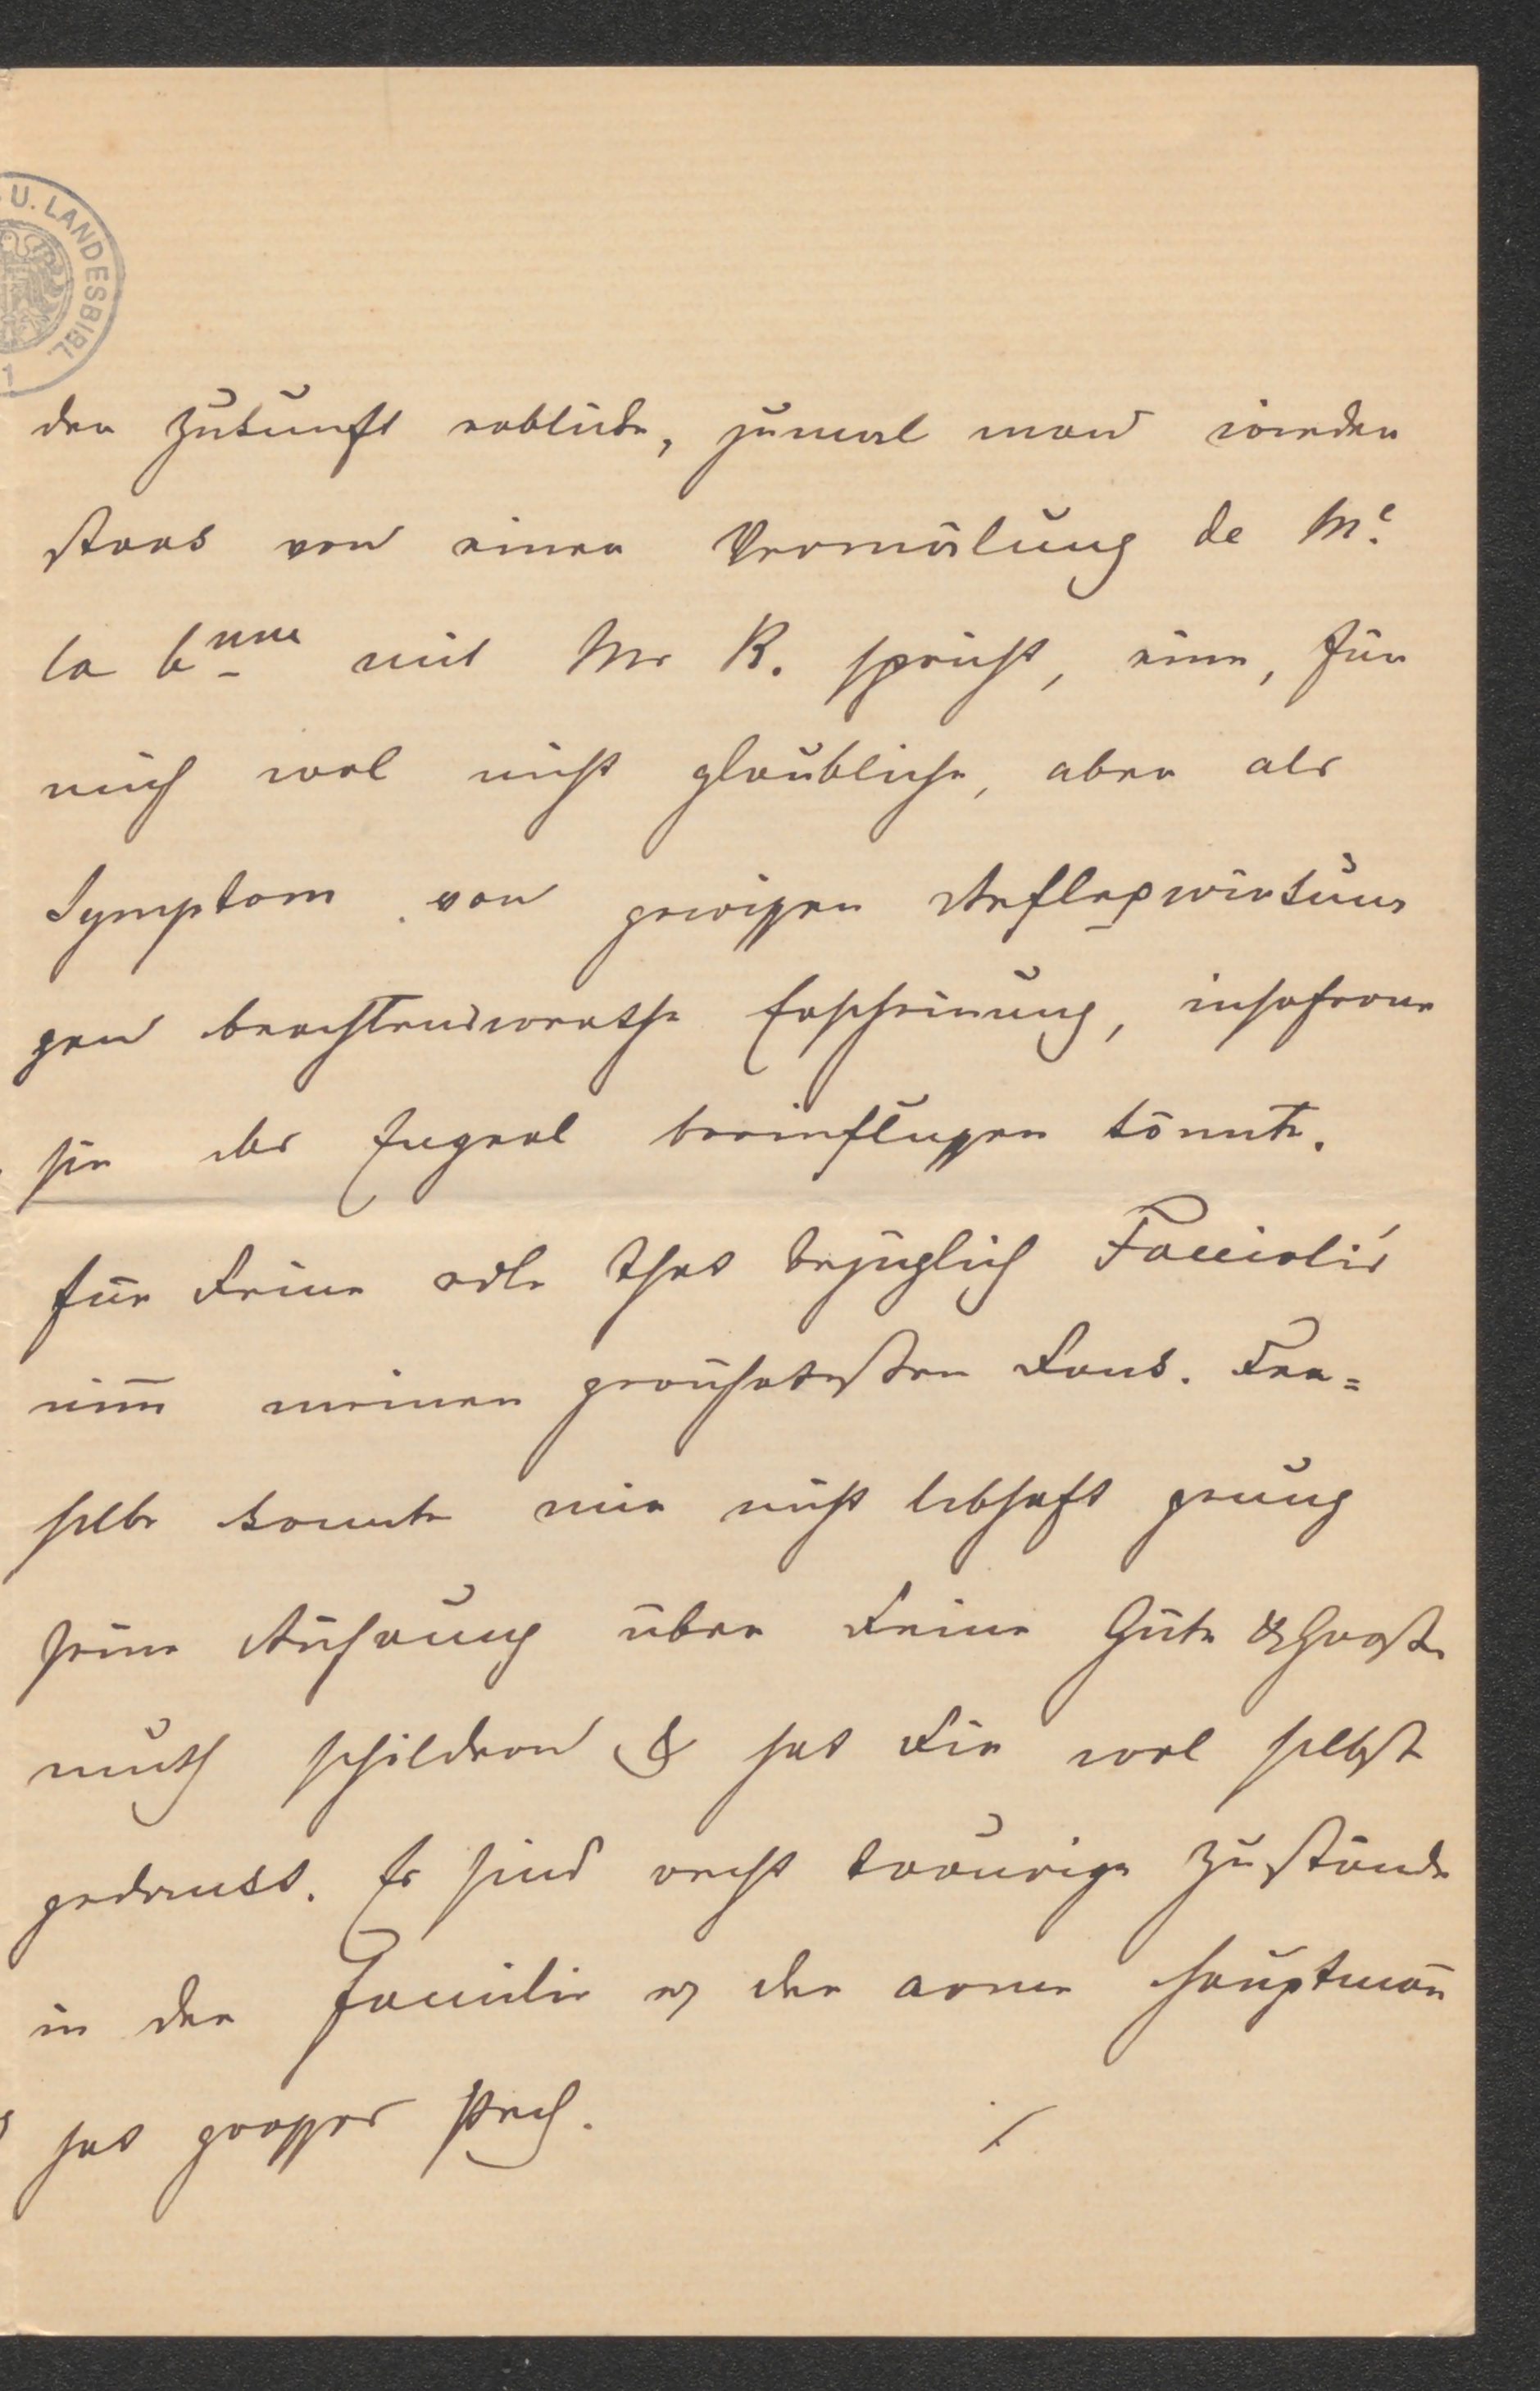 U. LANDESBIBL.
der Zukunft erblicke, zumal man wieder
stark von einer Vermälung de Me.
la bnne mit Mr R. spricht, eine, für
mich wol nicht glaubliche, aber als
Symptom von gewissen Reflexwirkun
gen beachtenswerthe Erscheinung, insoferne
sie das Engool beeinflussen könnte.
Für Deine edle That bezüglich Facciolis
nim̄ meinen gerührtesten Dank. Der=
selbe konnte mir nicht lebhaft genug
seine Rührung über Deine Güte & Gross
muth schildern & hat Dir wol selbst
gedankt. Es sind recht traurige Zustände
in der Familie u der arme Hauptman̄
hat grosses Pech.
./.